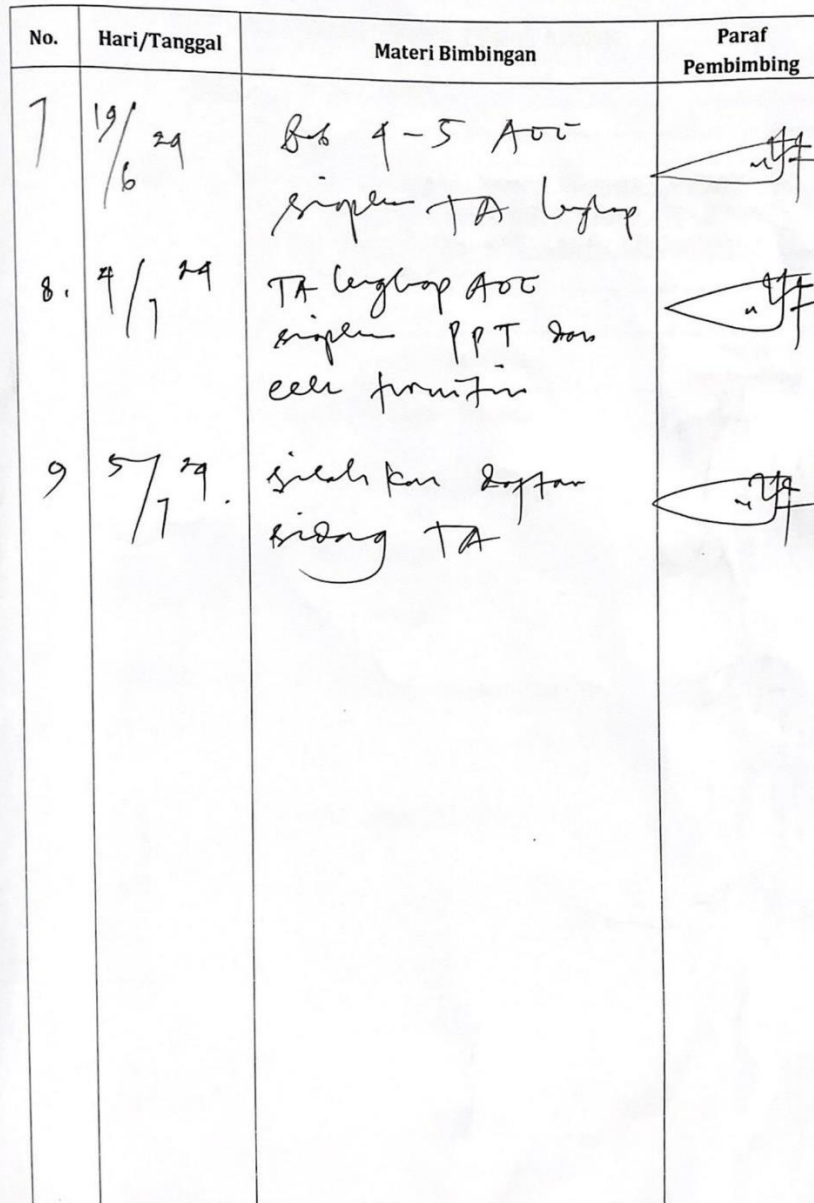 No. Hari/Tanggal Materi Bimbingan Paraf Pembimbing
7 19/6 24 Bab 4-5 ACC
siapkan TA lengkap
8. 4/7 24 TA lengkap ACC
siapkan PPT dan
cek
9 5/7 24. silahkan daftar
sidang TA